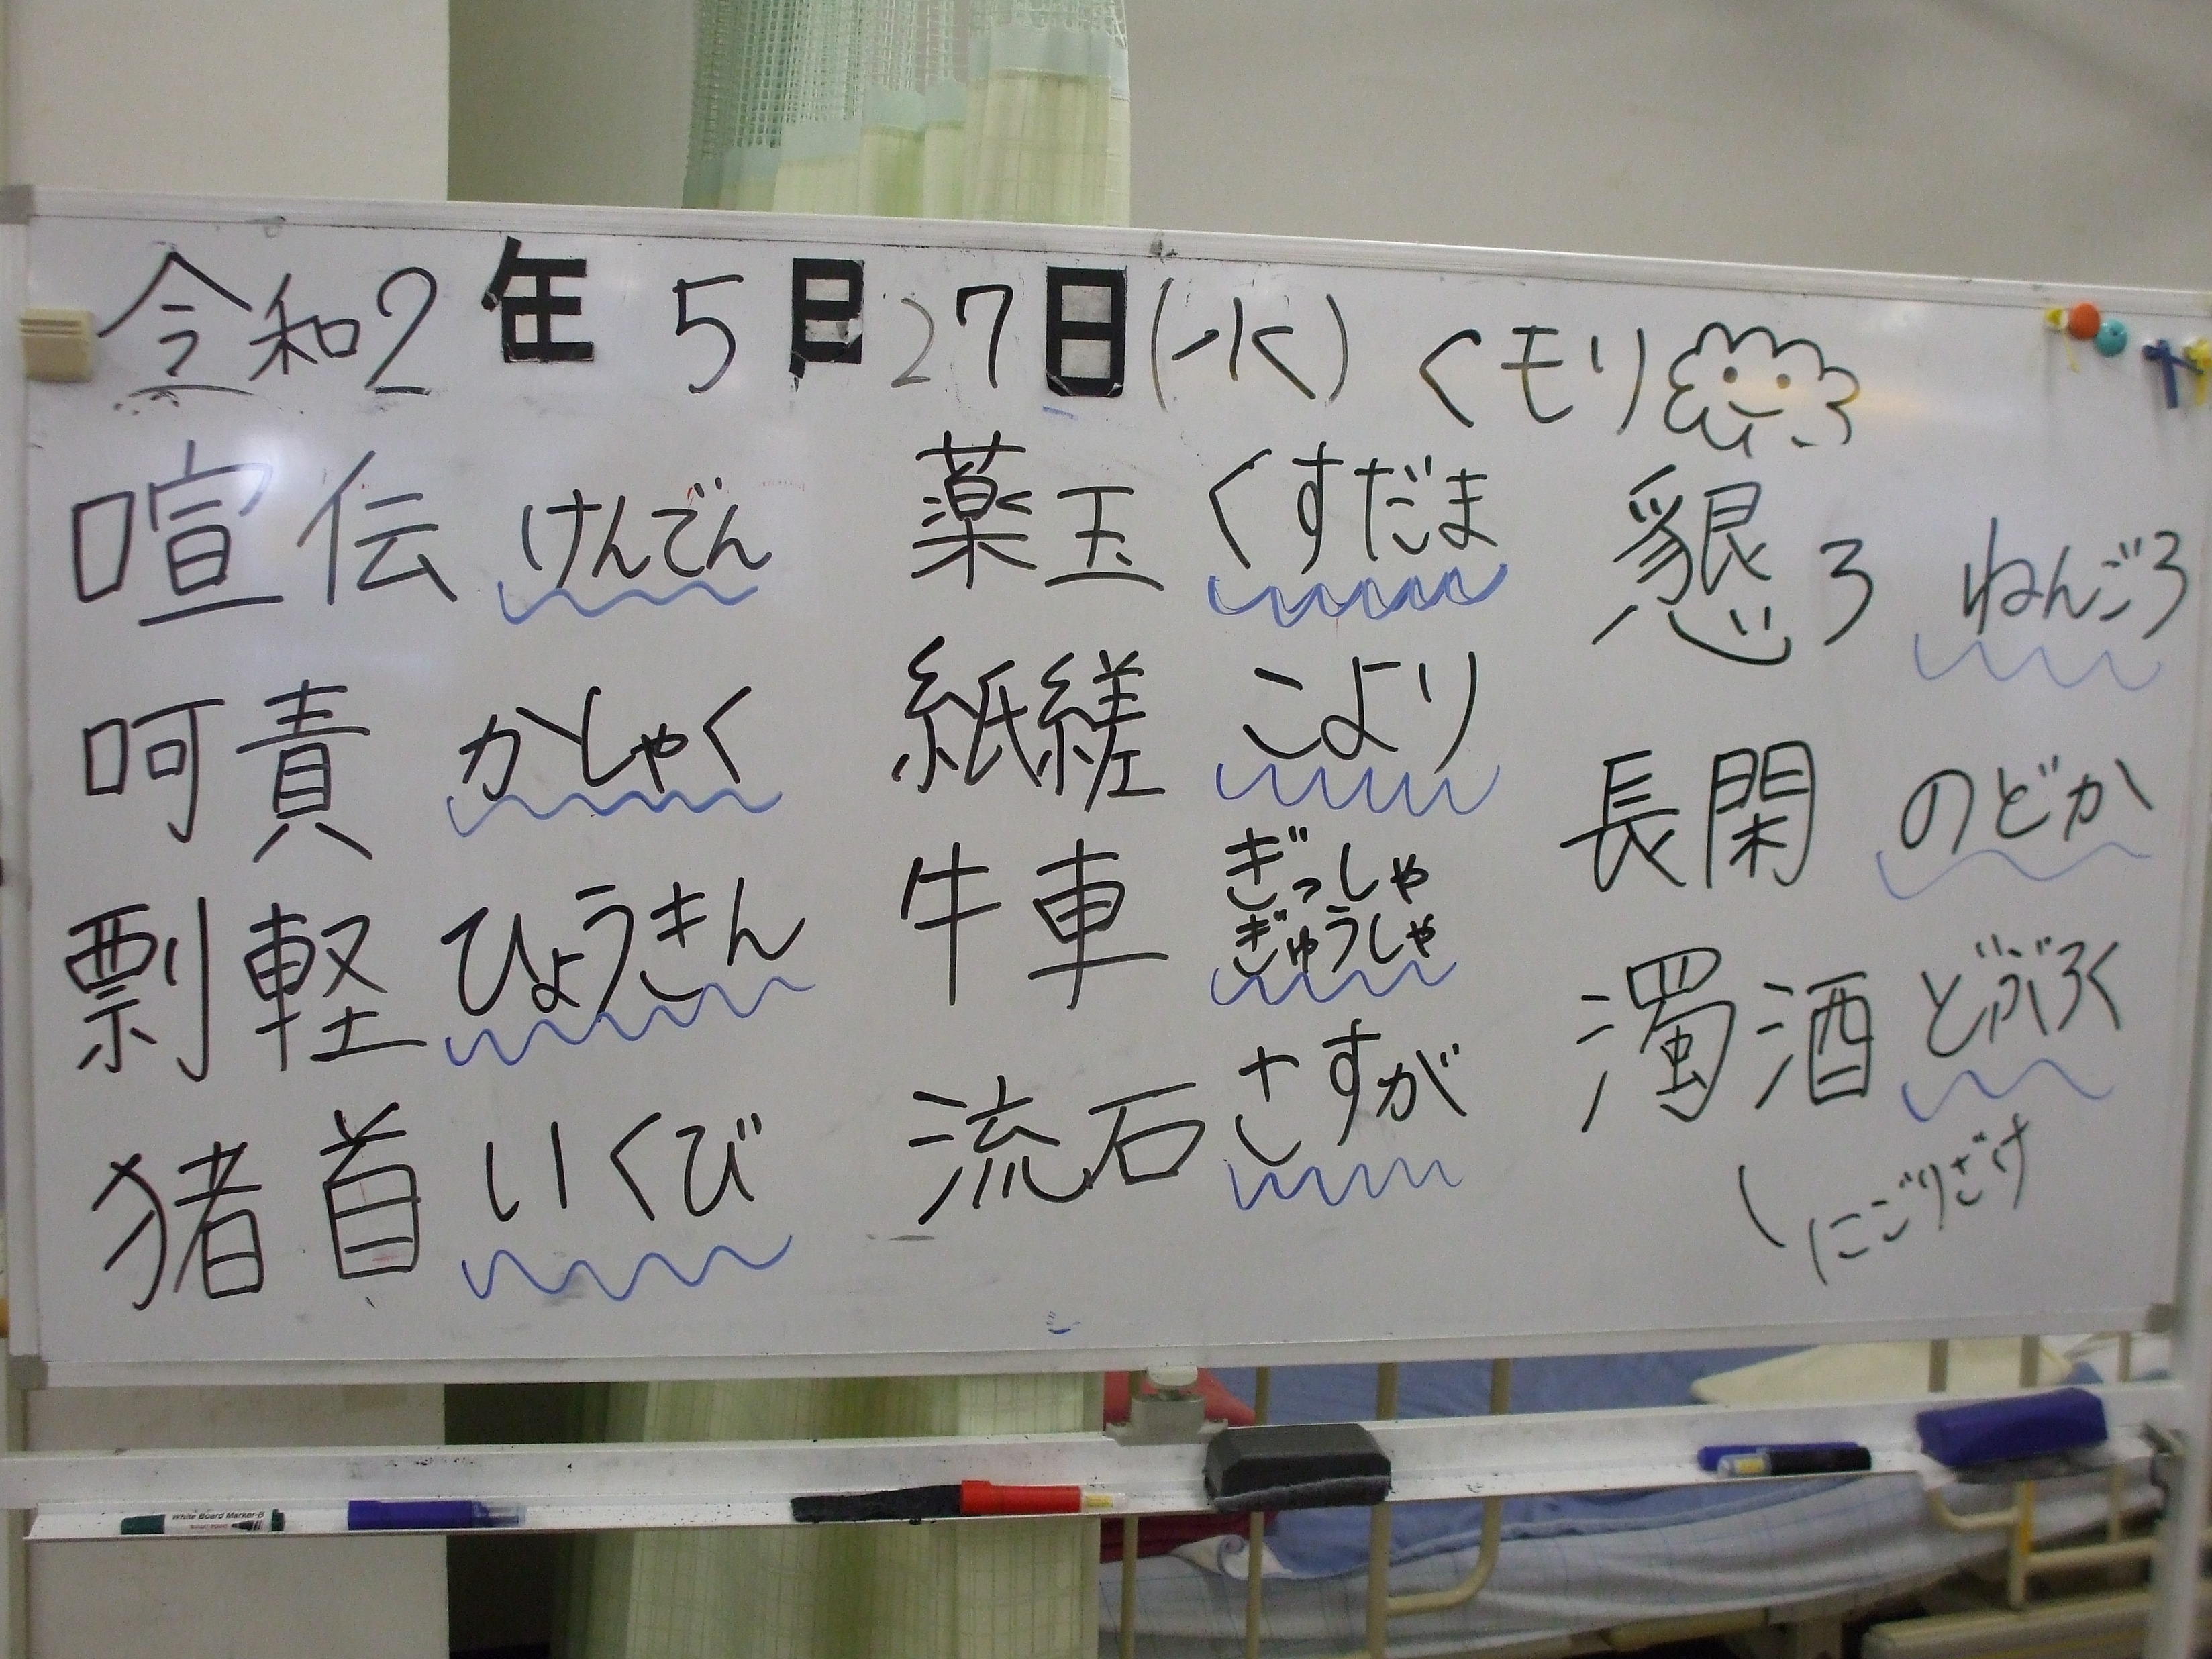 令和2年 5月27日(水) くモリ
喧伝 けんでん
呵責 かしゃく
剽軽 ひょうきん
猪首 いくび
薬玉 くすだま
紙縒 こより
牛車 ぎっしゃ
ぎゅうしゃ
流石 さすが
懇ろ ねんごろ
長閑 のどか
濁酒 どぶろく
にごりざけ
White Board Marker-B